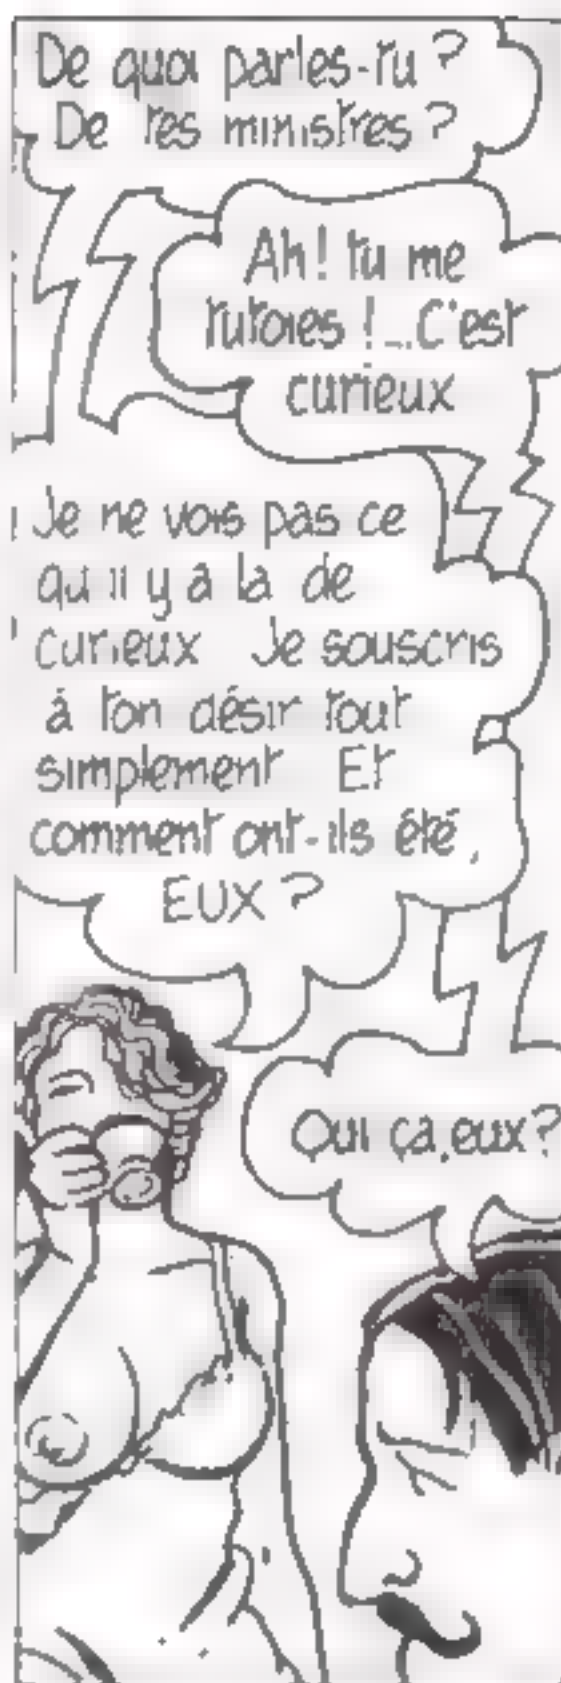 De quoi parles-tu ?
De tes ministres ?
Ah ! tu me
tutoies !...C'est
curieux
Je ne vois pas ce
qu'il y a là de
curieux Je souscris
à ton désir tout
simplement Et
comment ont-ils été,
EUX ?
Qui ça, eux ?